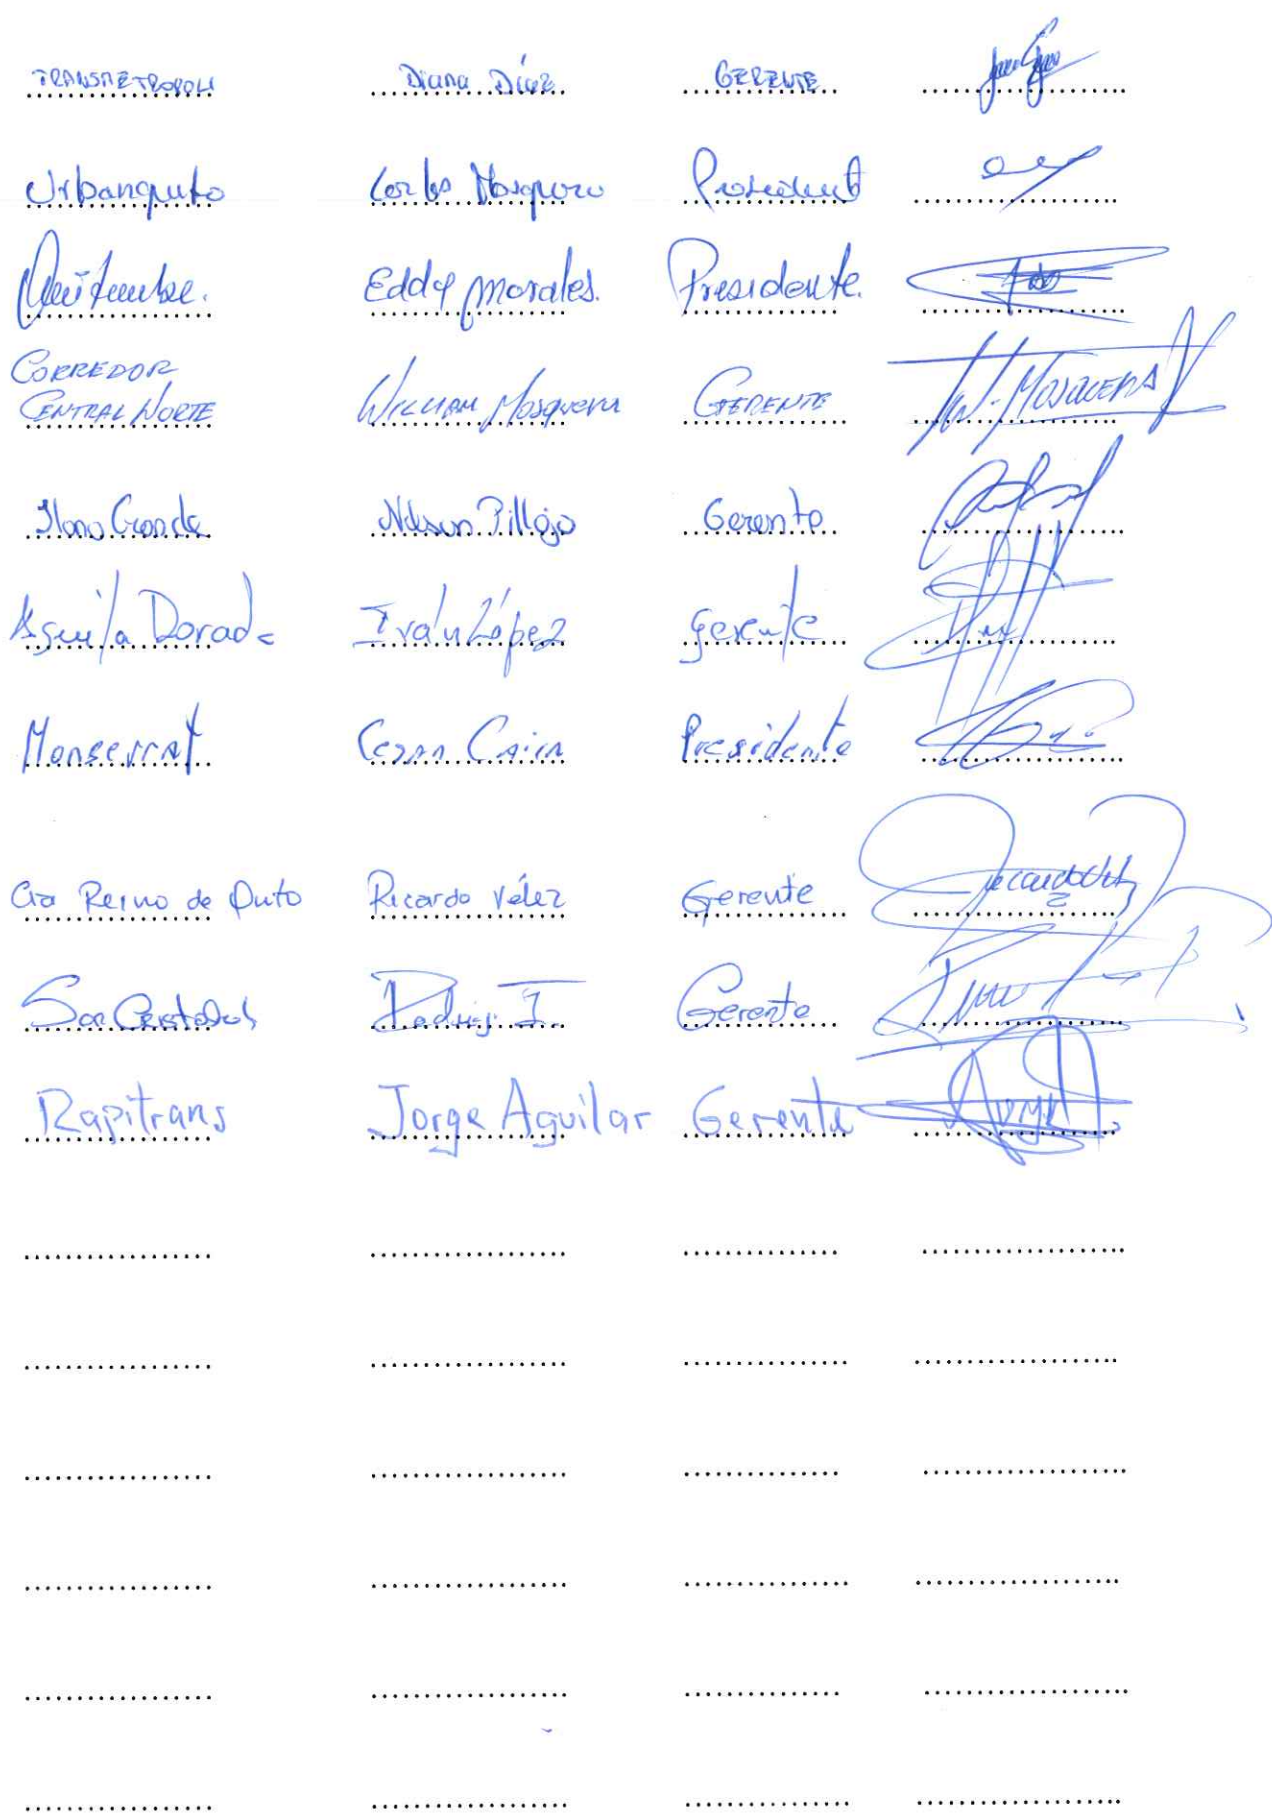 TRANSMETROPOLI Diana Díaz GERENTE
Urbanquito Carlos Mosquera Presidente
Quitumbe. Eddy Morales. Presidente.
CORREDOR
CENTRAL NORTE WILLIAM Mosquera GERENTE W. MOSQUERA
Llano Grande Nelson Pillajo Gerente
Aguila Dorada Iván López gerente
Monserrat Cesar Caiza Presidente
Cia Reino de Quito Ricardo Vélez Gerente
San Cristobal Gerente
Rapitrans Jorge Aguilar Gerente